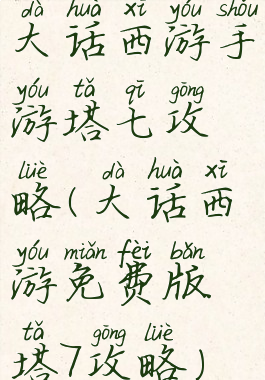 dà huà xī yóu shǒu
大话西游手
yóu tǎ qī gōng
游塔七攻
lüè dà huà xī
略(大话西
yóu miǎn fèi bǎn
游免费版
tǎ gōng lüè
塔7攻略)